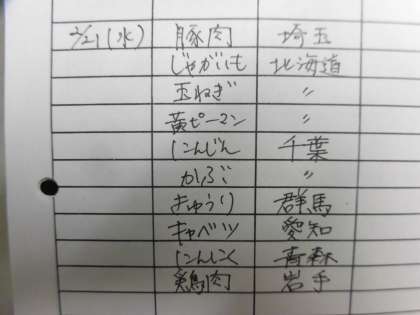 2/21(水) 豚肉 埼玉
じゃがいも 北海道
玉ねぎ 〃
黄ピーマン 〃
にんじん 千葉
かぶ 〃
きゅうり 群馬
キャベツ 愛知
にんにく 青森
鶏肉 岩手